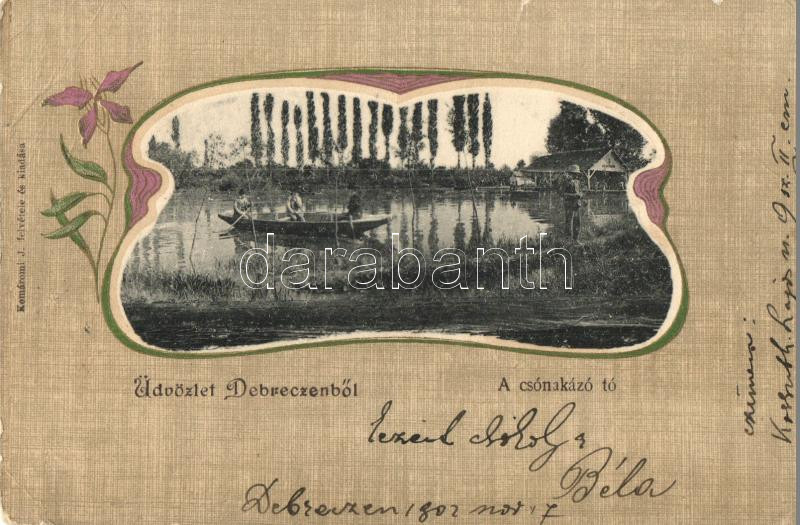 Komáromi J. felvétele és kiadása
darabanth
Üdvözlet Debreczenből
A csónakázó tó
kezeit csókolja
Béla
Debreczen 1902 nov. 7
Kossuth Lajos u. 9 sz. II. em.